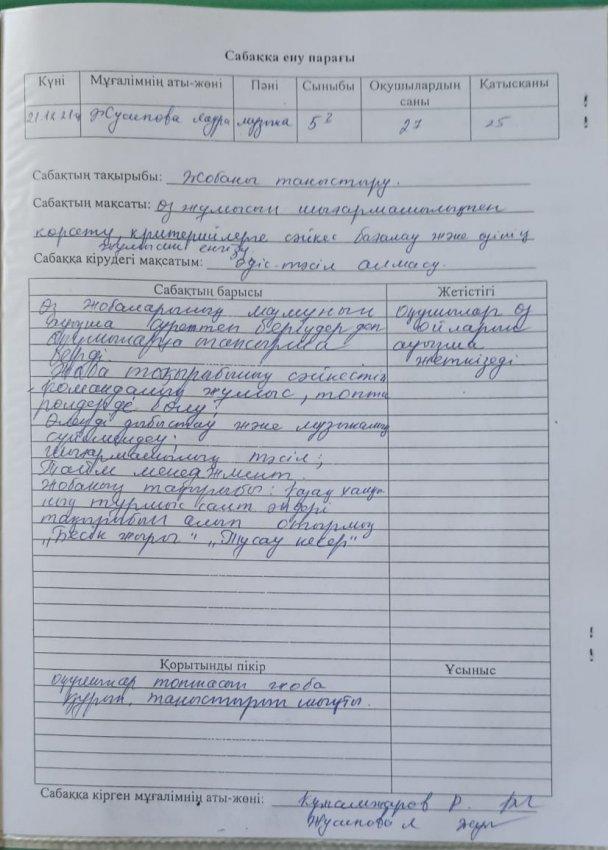 Сабаққа ену парағы
Күні Мұғалімнің аты-жөні Пәні Сыныбы Оқушылардың саны Қатысқаны
Жусипова Ляззра музыка 5 27 25
Сабақтың тақырыбы: Жобаны таныстыру.
Сабақтың мақсаты: Өз жұмысын шығармашылықпен
көрсету, критерийлерге сәйкес бағалау және өзінің
жұмысына енгізу
Сабаққа кірудегі мақсатым: Әдіс-тәсіл алмасу.
Сабақтың барысы Жетістігі
Өз жобаларының мазмұнын Оқушылар өз
суреттен беріңдер деп ойларын
Оқушыларға тапсырма ауызша
берді жеткізеді
Жоба тақырыбының сәйкестігі
командалық жұмыс, топта
рөлдерді бөлу;
Өлеңді дыбыстау және музыкалық
сүйемелдеу;
шығармашылық тәсіл;
Тайм менеджмент.
Жобаның тақырыбы: Қазақ халқы
ның тұрмыс салт әндері
тақырыбын алып отырмыз
„Бесік жыры" „Тұсау кесер"
Қорытынды пікір Ұсыныс
Оқушылар топтасып жоба
құрып, таныстырып шықты.
Сабаққа кірген мұғалімнің аты-жөні: Құмалжаров Р.
Жусипова Л